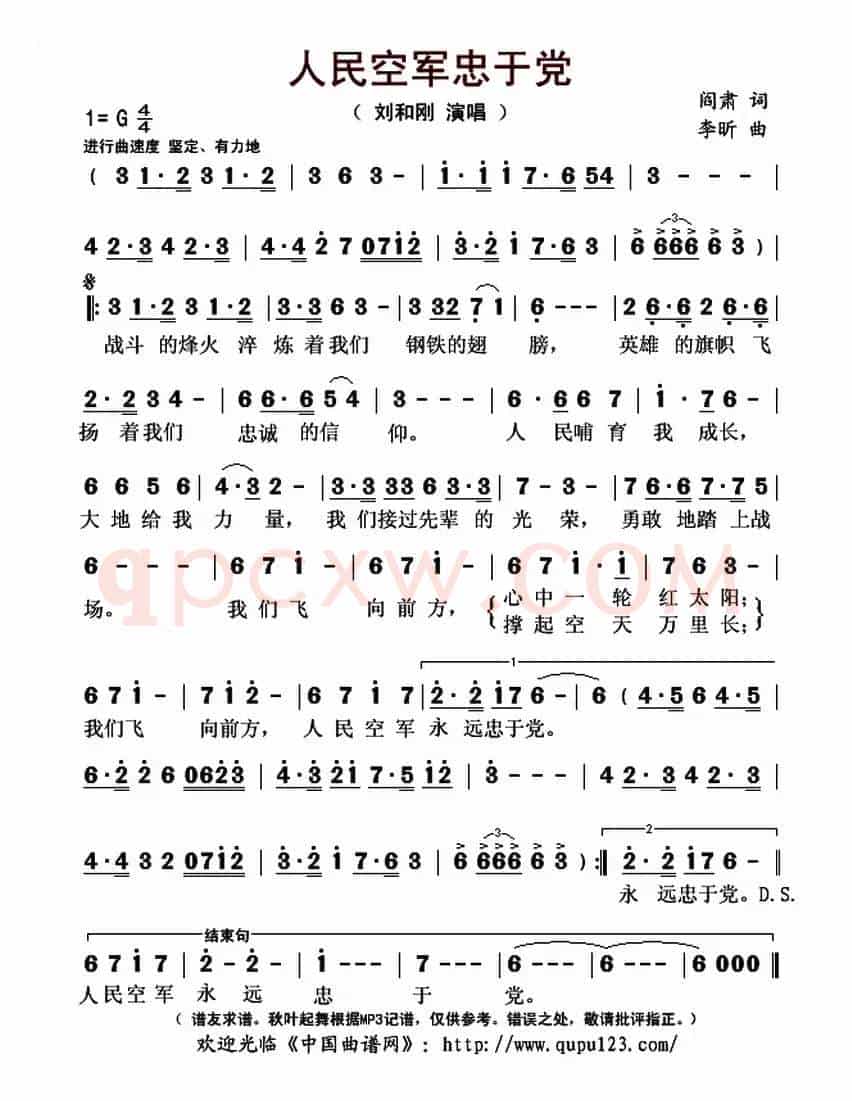 人民空军忠于党
（ 刘和刚 演唱 ）
阎肃 词
李昕 曲
1= G 4/4
进行曲速度 坚定、有力地
( 3 1· 2 3 1· 2 | 3 6 3 - | 1· 1 1 7· 6 54 | 3 - - - |
4 2·3 4 2·3 | 4·4 2 7 0712 | 3·2 1 7·6 3 | 6 666 6 3 ) |
3
|: 3 1·2 3 1·2 | 3·3 6 3 - | 3 32 7 1 | 6 - - - | 2 6·6 2 6·6 |
战斗 的烽火 淬 炼着我们 钢铁的翅 膀， 英雄 的旗帜 飞
2·2 3 4 - | 6 6·6 5 4 | 3 - - - | 6· 6 6 7 | 1· 7 6 - |
扬 着我们 忠诚 的信 仰。 人 民哺育 我 成长，
6 6 5 6 | 4·3 2 - | 3·3 33 6 3·3 | 7 - 3 - | 7 6·6 7·7 5 |
大地给我 力 量， 我 们接过先辈 的 光 荣， 勇敢 地踏 上战
6 - - - | 6 7 1 - | 6 7 1 - | 6 7 1· 1 | 7 6 3 - |
场。 我们飞 向前方， 心中一 轮 红太阳；
撑起空 天 万里长；
qpcxw.com
1
6 7 1 - | 7 1 2 - | 6 7 1 7 | 2· 2 17 6 - | 6 ( 4·5 6 4·5 |
我们飞 向前方， 人民空军 永 远忠于党。
6·2 2 6 0623 | 4·3 21 7·5 12 | 3 - - - | 4 2·3 4 2·3 |
4·4 3 2 0712 | 3·2 1 7·6 3 | 6 666 6 3 ) :| 2· 2 17 6 - ‖
3
2
永 远忠于党。D.S.
结束句
6 7 1 7 | 2 - 2 - | 1 - - - | 7 - - - | 6 - - - | 6 - - - | 6 0 0 0 ‖
人民空军 永 远 忠 于 党。
（ 谱友求谱。秋叶起舞根据MP3记谱，仅供参考。错误之处，敬请批评指正。）
欢迎光临《中国曲谱网》：http://www.qupu123.com/